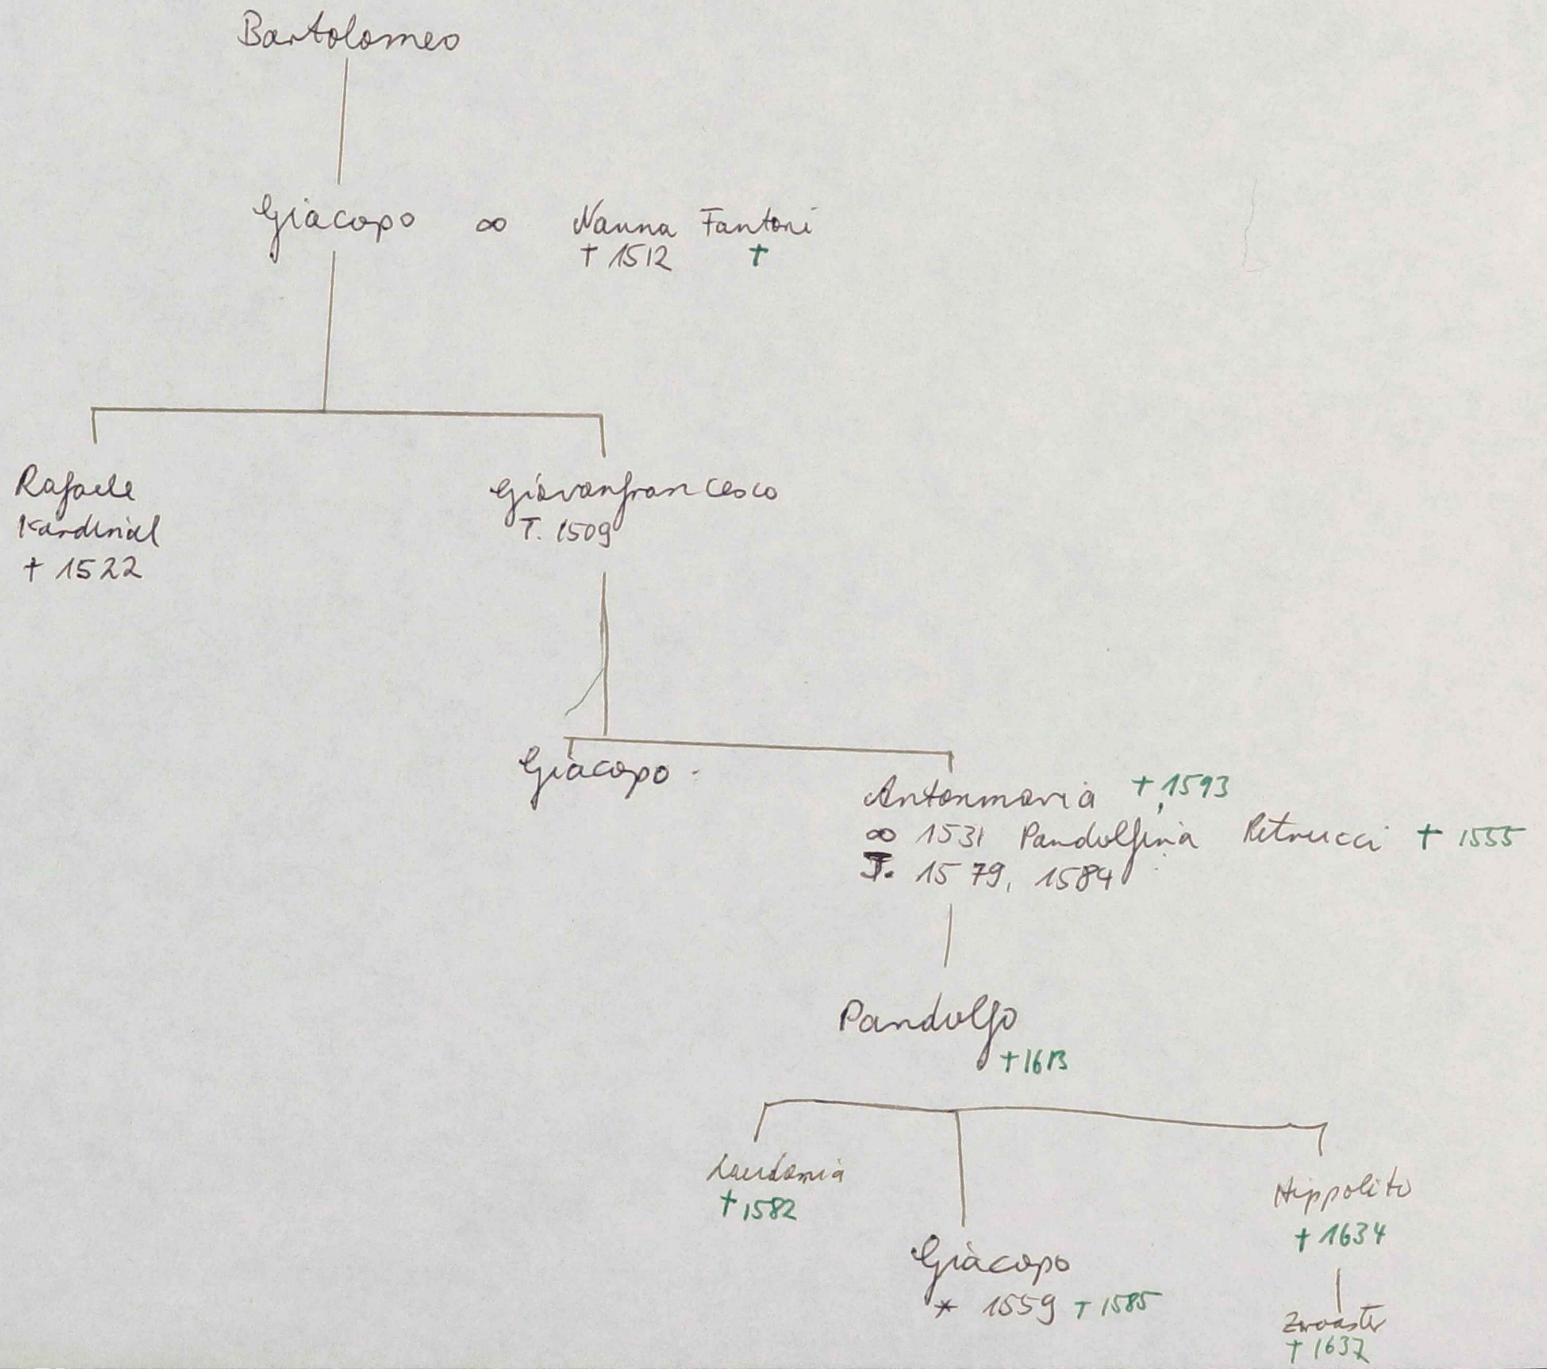 Bartolomeo
Giacopo ∞ Nanna Fantoni
† 1512 †
Rafaele
Kardinal
† 1522
Giovanfrancesco
T. 1509
Giacopo
Antonmaria † 1593
∞ 1531 Pandolfina Petrucci † 1555
T. 1579, 1584
Pandolfo
† 1613
Laudomia
† 1582
Hippolito
† 1634
Giacopo
* 1559 † 1585
† 1637